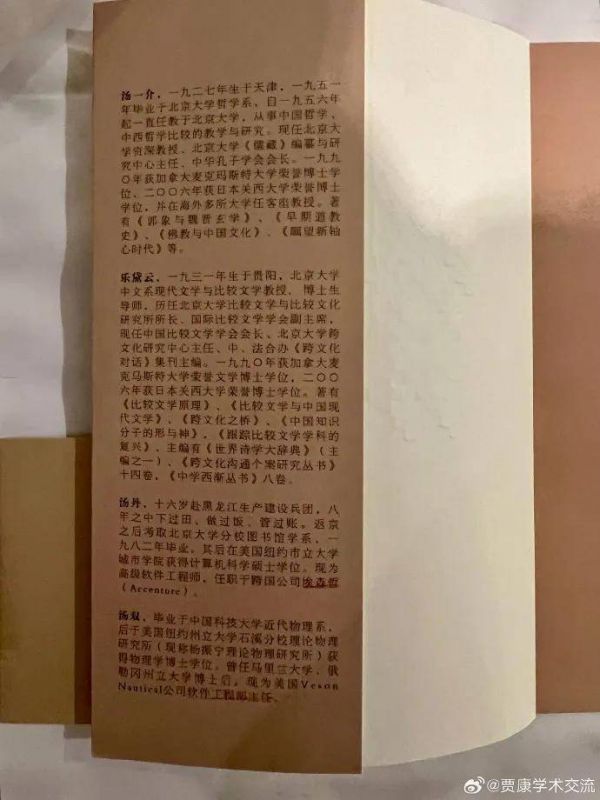 汤一介，一九二七年生于天津，一九五一
年毕业于北京大学哲学系、自一九五六年
起一直任教于北京大学，从事中国哲学、
中西哲学比较的教学与研究。现任北京大
学资深教授、北京大学《儒藏》编纂与研
究中心主任、中华孔子学会会长。一九九
〇年获加拿大麦克玛斯特大学荣誉博士学
位、二〇〇六年获日本关西大学荣誉博士
学位，并在海外多所大学任客座教授。著
有《郭象与魏晋玄学》、《早期道教
史》、《佛教与中国文化》、《瞩望新轴
心时代》等。
乐黛云，一九三一年生于贵阳，北京大学
中文系现代文学与比较文学教授、博士生
导师，历任北京大学比较文学与比较文化
研究所所长、国际比较文学学会副主席，
现任中国比较文学学会会长、北京大学跨
文化研究中心主任、中、法合办《跨文化
对话》集刊主编。一九九〇年获加拿大麦
克马斯特大学荣誉文学博士学位，二〇〇
六年获日本关西大学荣誉博士学位。著有
《比较文学原理》、《比较文学与中国现
代文学》、《跨文化之桥》、《中国知识
分子的形与神》、《跟踪比较文学学科的
复兴》，主编有《世界诗学大辞典》（主
编之一）、《跨文化沟通个案研究丛书》
十四卷，《中学西渐丛书》八卷。
汤丹，十六岁赴黑龙江生产建设兵团，八
年之中下过田、做过饭、管过账。返京
之后考取北京大学分校图书馆学系，一
九八二年毕业，其后在美国纽约市立大学
城市学院获得计算机科学硕士学位。现为
高级软件工程师，任职于跨国公司埃森哲
（Accenture）。
汤双，毕业于中国科技大学近代物理系，
后于美国纽约州立大学石溪分校理论物理
研究所（现称杨振宁理论物理研究所）获
得物理学博士学位。曾任马里兰大学、俄
勒冈州立大学博士后，现为美国Veson
Nautical公司软件工程部主任。
@贾康学术交流